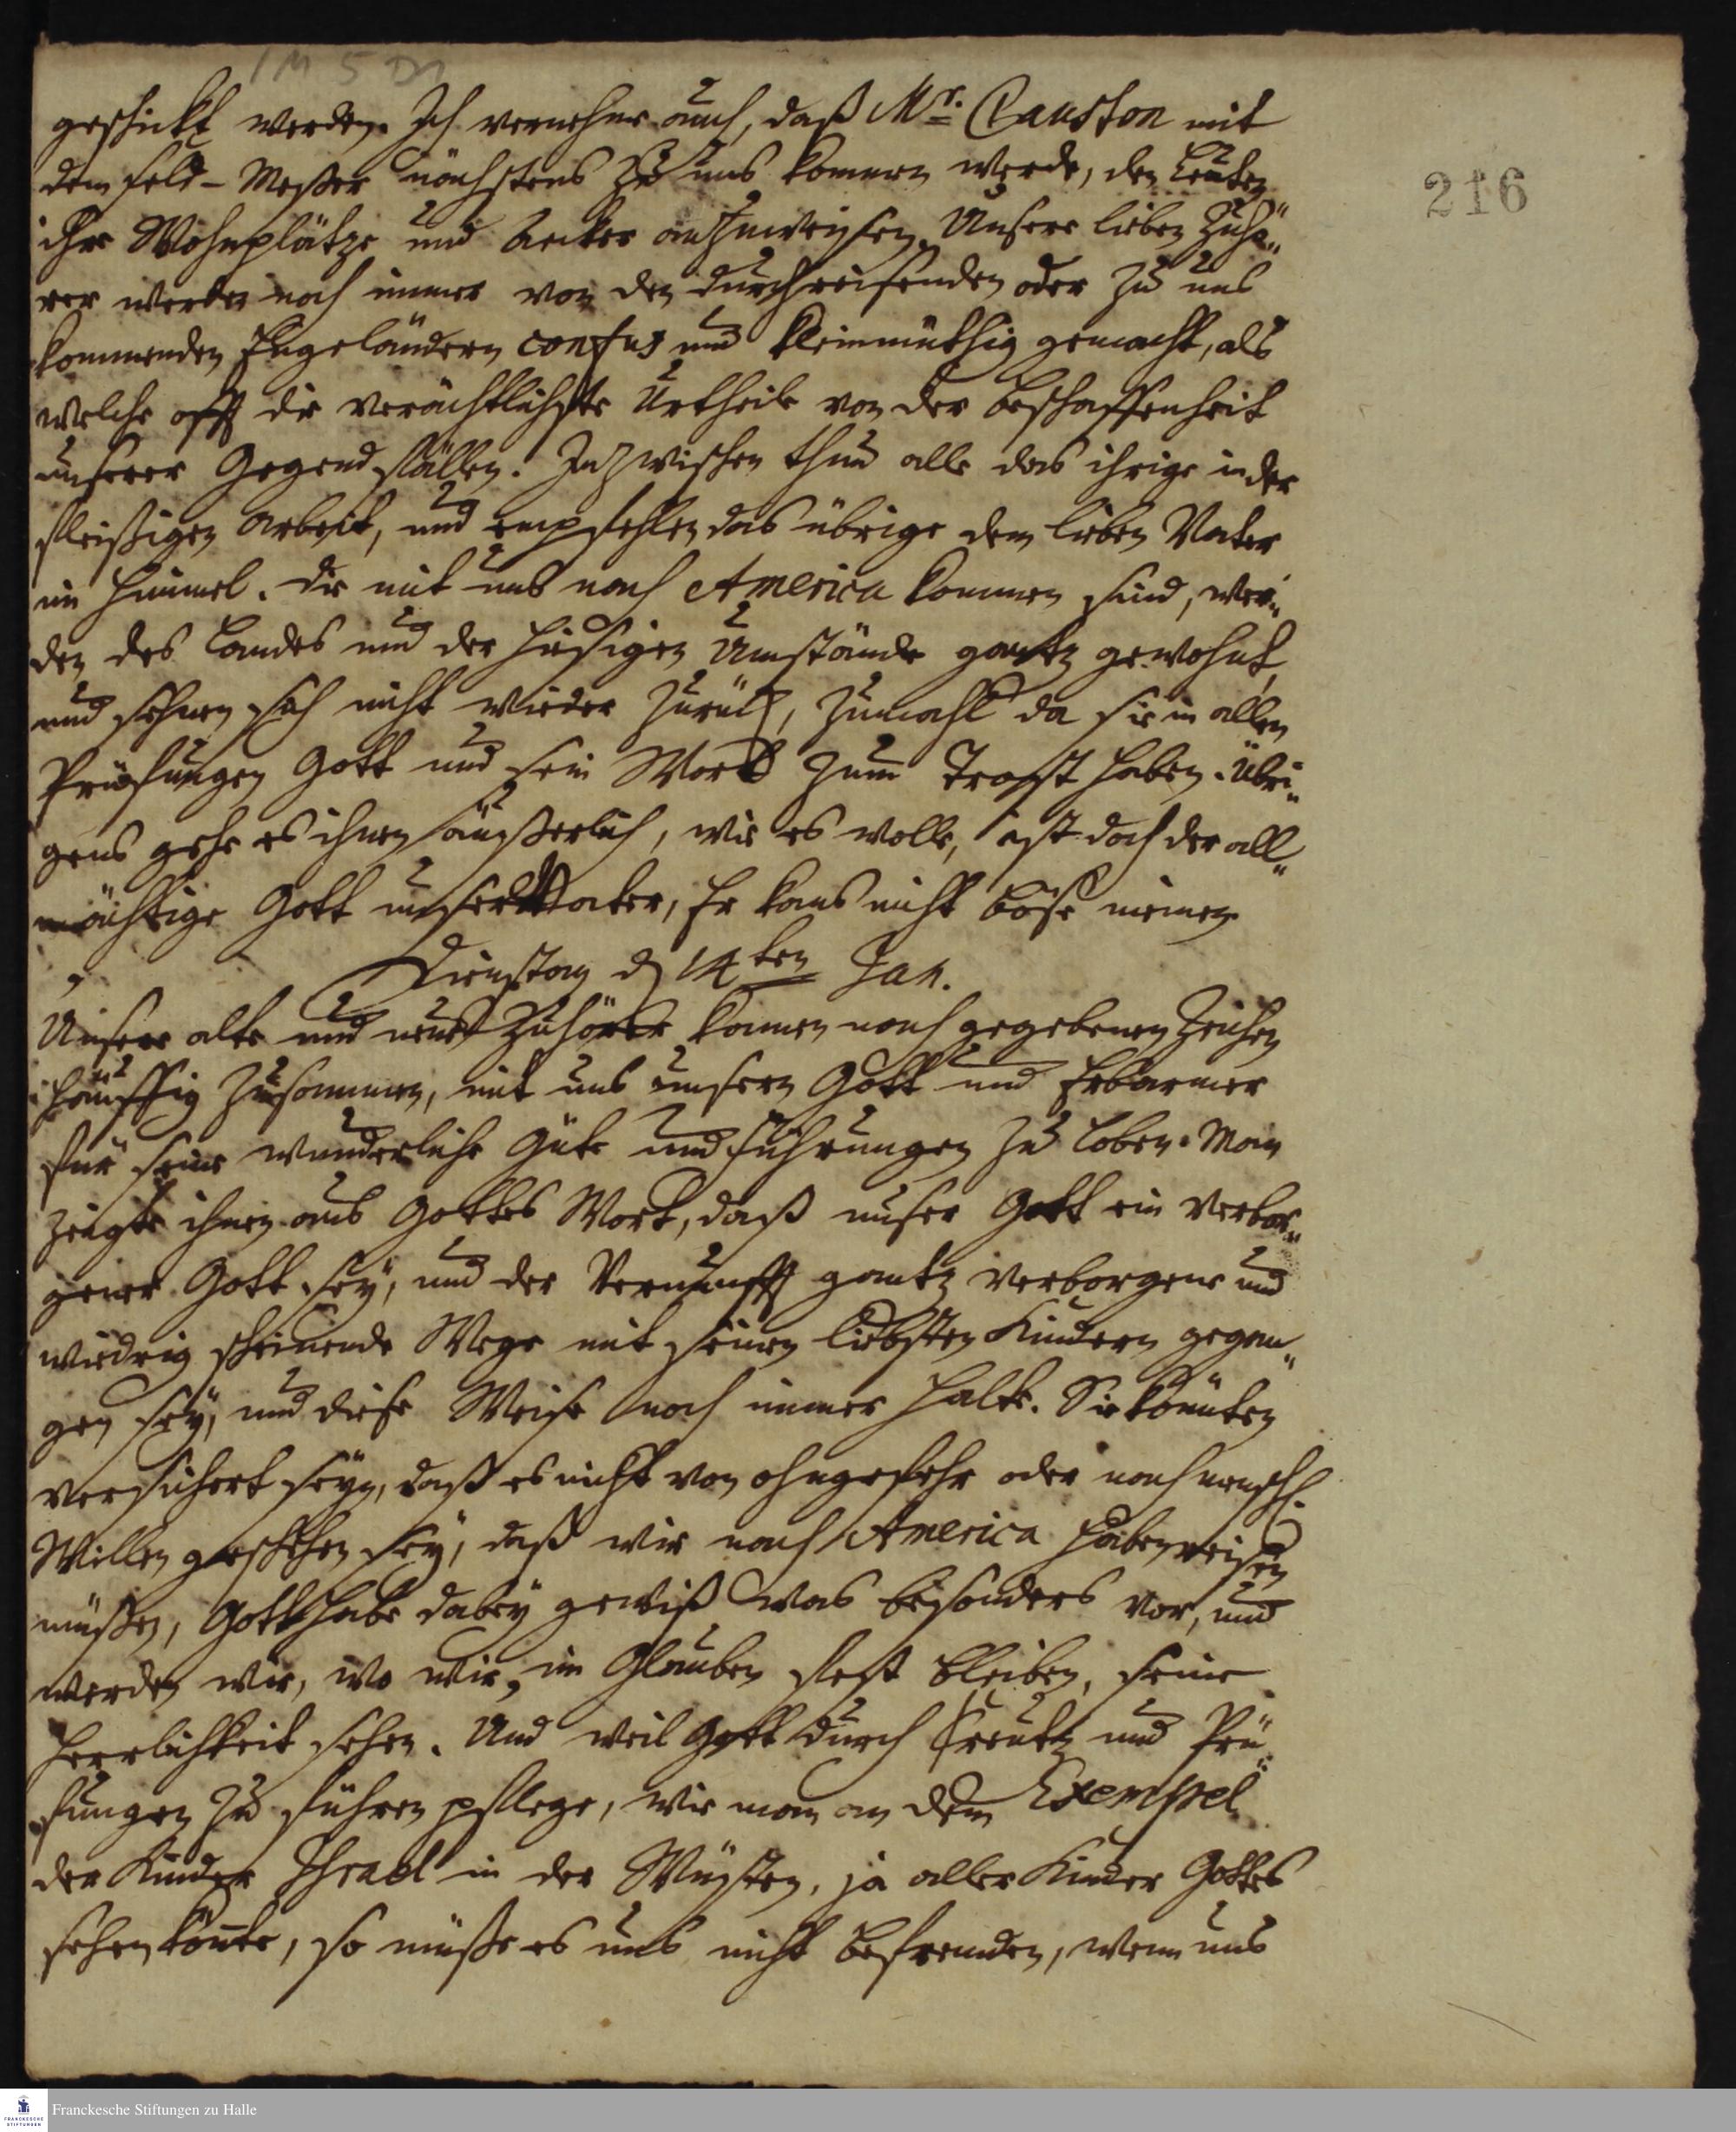 1 M 5 D1
216
geschickt werden. Ich vernehme auch, daß Mr. Causton mit
dem Feld-Meßer nächstens zu uns kommen werde, den Leuten
ihre Wohnplätze und Aecker anzuweisen. Unsere lieben Zuhö„
rer werden noch immer von den durchreisenden oder zu uns
kommenden Engeländern confus und kleinmüthig gemacht, als
welche offt die verächtlichste Urtheile von der Beschaffenheit
unserer Gegend fällen. Inzwischen thun alle das ihrige in der
fleißigen Arbeit, und empfehlen das übrige dem lieben Vater
im Himmel. Die mit uns nach America kommen sind, wer„
den des Landes und der hiesigen Umstände gantz gewohnt,
und sehnen sich nicht wieder zurück, zumahl da sie in allen
Prüfungen Gott und sein Wort zum Trost haben. Übri„
gens gehe es ihnen äußerlich, wie es wolle, ist doch der all„
mächtige Gott unser Vater, Er kans nicht böse meinen.
Dienstag d 14ten Jan.
Unsere alte und neue Zuhörer kamen nach gegebenen Zeichen
häuffig zusammen, mit uns unsern Gott und Erbarmer
für seine wunderliche Güte und Führungen zu loben. Man
zeigte ihnen aus Gottes Wort, daß unser Gott ein verbor„
gener Gott sey, und der Vernunfft gantz verborgene und
wiedrig scheinende Wege mit seinen liebsten Kindern gegan„
gen sey, und diese Weise noch immer halte. Sie könten
versichert seyn, daß es nicht von ohngefehr oder nach menschl.
Willen geschehen sey, daß wir nach America haben reisen
müßen, Gott habe dabey gewiß was besonders vor, und
werden wir, wo wir im Glauben fest bleiben, seine
Herrlichkeit sehen. Und weil Gott durch Creutz und Prü„
fungen zu führen pflege, wie man an dem Exempel
der Kinder Israel in der Wüsten, ja aller Kinder Gottes
sehen könte, so müße es uns nicht befremden, wenn uns
FRANCKESCHE STIFTUNGEN
Franckesche Stiftungen zu Halle